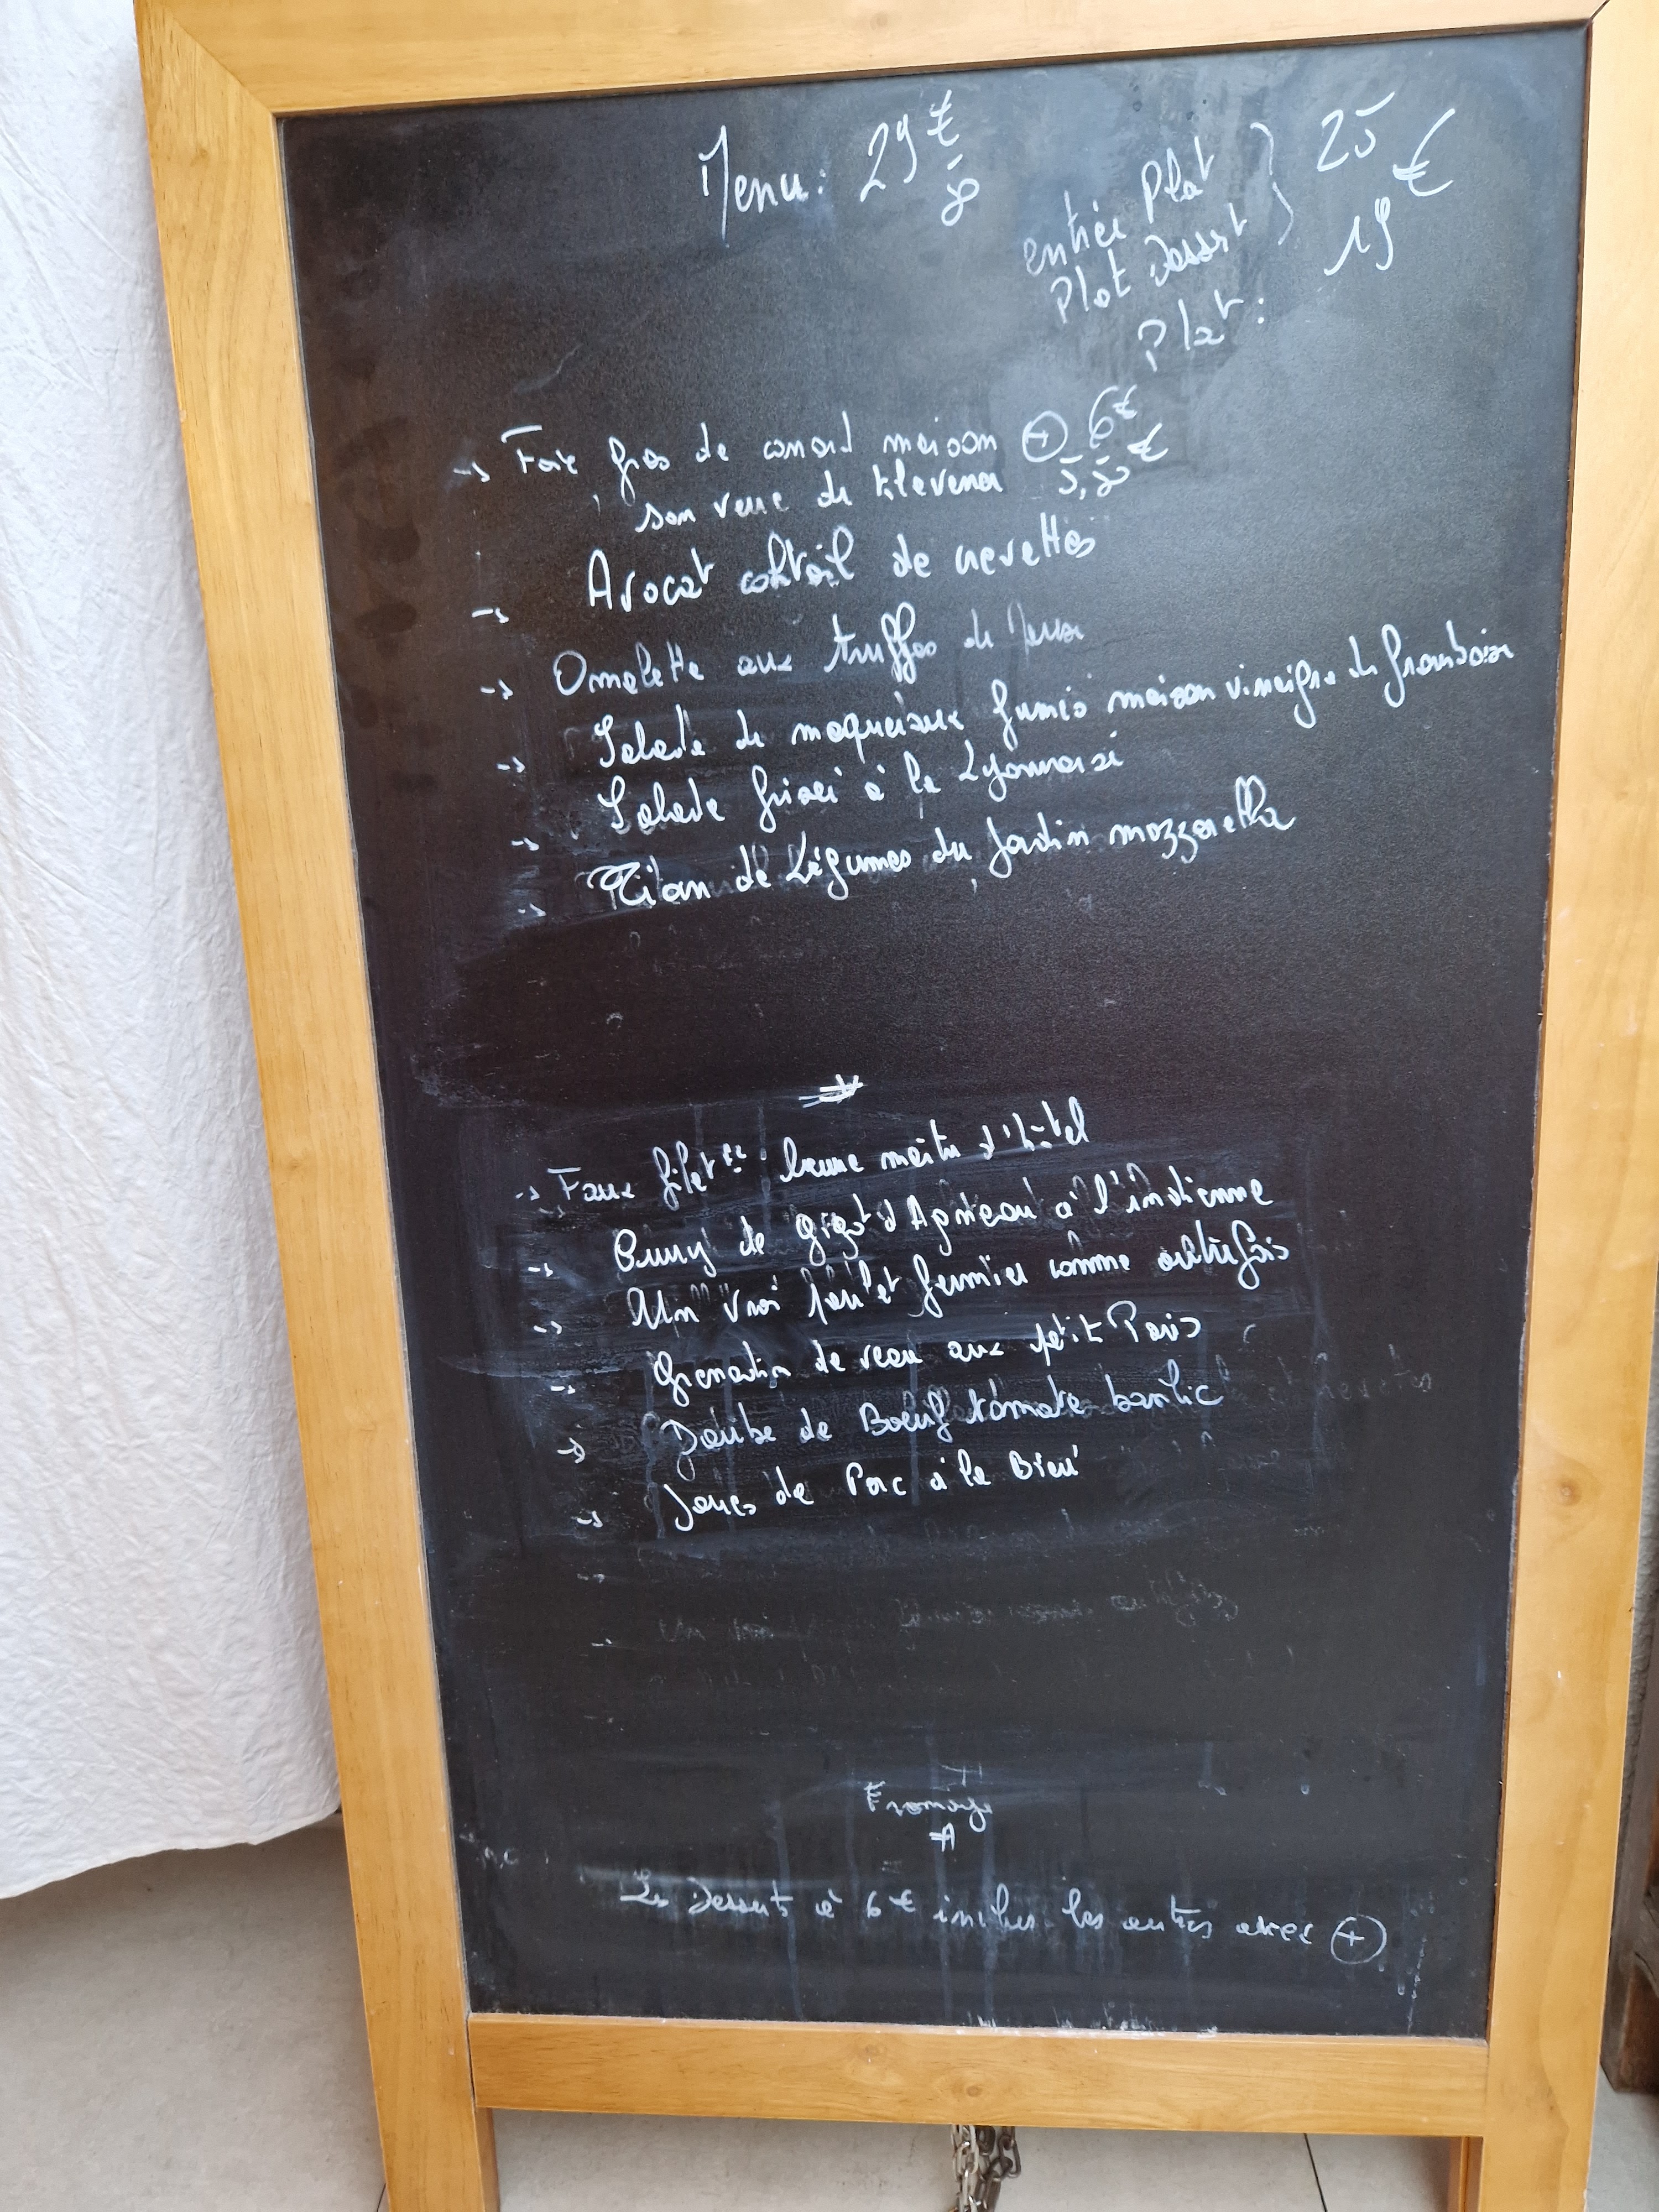 Menu: 29€50
entrée Plat
Plat Dessert } 25 €
Plat: 19
→ Foie gras de canard maison ⊕ 6€
son verre de Klevener 5,50€
→ Avocat coktail de crevettes
→ Omelette aux truffes de
→ Salade de maquereaux fumés maison vinaigre de framboise
→ Salade frisée à la Lyonnaise
→ Milan de Légumes du Jardin mozzarella
→ Faux filet beurre maitre d'hôtel
→ Curry de Gigot d'Agneau à l'indienne
→ Un vrai poulet fermier comme autrefois
→ Grenadin de veau aux petit Pois
→ Daube de Boeuf tomate basilic
→ Joues de Porc à la Bière
Fromage
Les Desserts à 6€ inclus les autres avec ⊕